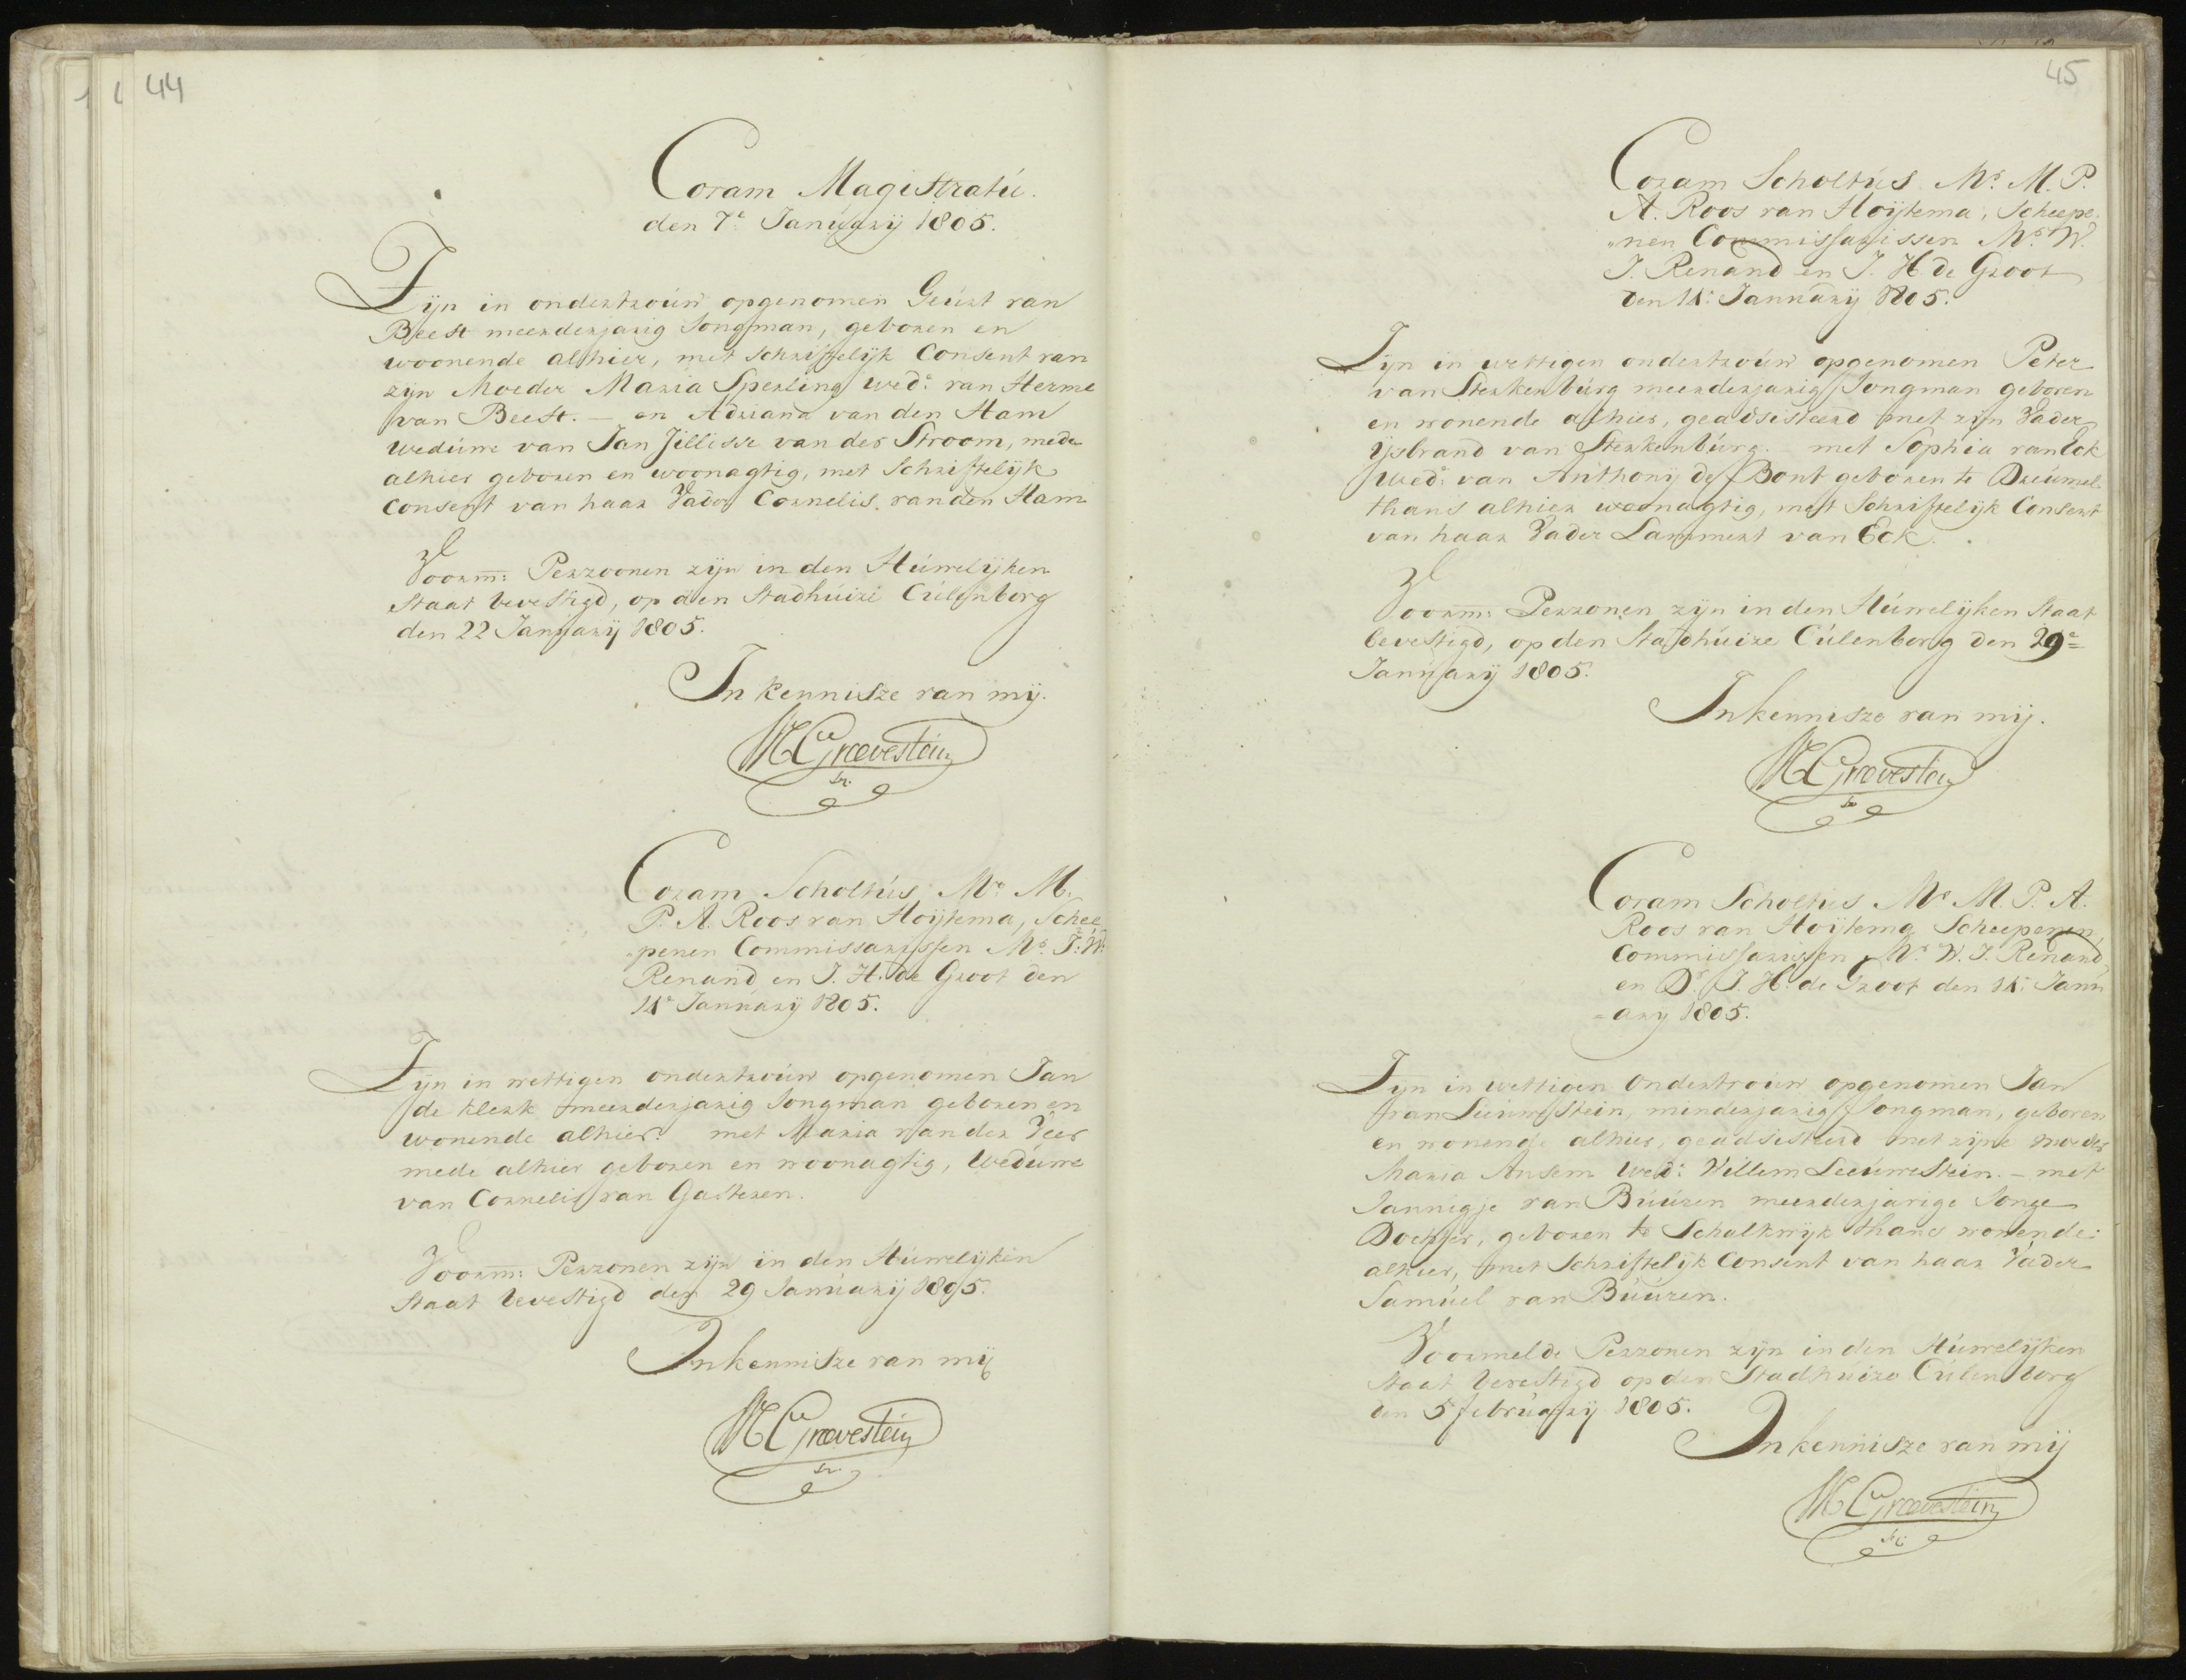 44
Coram Magistratú.
den 7e Janúarij 1805.
Zijn in ondertroúw opgenomen Geúrt van
Beest meerderjarig Jongman, geboren en
woonende alhier, met schriftelijk Consent van
zijn Moeder Maria Sperling wede: van Herme
van Beest. — en Adriana van den Ham
Wedúwe van Jan Jillisse van der Stroom, mede
alhier geboren en woonagtig, met Schriftelijk
Consent van haar Vader Cornelis. van den Ham
Voorm: Perzoonen zijn in den Húwelijken
Staat bevestigd, op den Stadhúize Cúlenborg
den 22 Janúarij 1805.
In kennisze van mij.
M Grevestein
Sr.
Coram Scholtús Mr. M.
P. A. Roos van Hoijtema, Schee
„penen Commissarissen Mr. J: W:
Renand en J. H. de Groot den
14e Janúarij 1805.
Zijn in wettigen ondertroúw opgenomen Jan
de Klerk meerderjarig Jongman geboren en
wonende alhier. met Maria van der Veer
mede alhier geboren en woonagtig, Wedúwe
van Cornelis van Gasteren.
Voorm: Perzonen zijn in den Húwelijken
Staat bevestigd den 29 Janúarij 1805.
In kennisze van mij
M Grevestein
Sr.
45
Coram Scholtús Mr. M. P.
A. Roos van Hoijtema, Scheepe
„nen Commissarissen Mr. W.
J. Renand en J. H de Groot
den 14: Janúarij 1805.
Zijn in wettigen ondertroúw opgenomen Peter
van Sterkenbúrg meerderjarig Jongman geboren
en wonende alhier, geadsisteerd met zijn Vader
Ijsbrand van Sterkenbúrg. — met Sophia van Eck
Wede: van Anthonij de Bont geboren te Dreúmel
thans alhier woonagtig, met Schriftelijk Consent
van haar Vader Lammert van Eck.
Voorm: Perzonen zijn in den Húwelijken Staat
bevestigd, op den Stadhúize Cúlenborg den 29e
Janúarij 1805.
In kennisze van mij.
M Grevestein
Sr
Coram Scholtús Mr M. P. A.
Roos van Hoijtema Scheepenen,
Commissarissen Mr. W. J. Renand,
en Dr. J. H. de Groot den 14: Janú
=arij 1805.
Zijn in wettigen Ondertroúw opgenomen Jan
van Leeúwestein, minderjarig Jongman, geboren
en wonende alhier, geadsisteerd met zijne moeder
Maria Ansem Wed: Willem Leeúwestein. — met
Jannigje van Búúren meerderjarige Jonge
Dochter, geboren te Schalkwijk thans wonende
alhier, met Schriftelijk Consent van haar Vader
Samúel van Búúren.
Voormelde Perzonen zijn in den Húwelijken
Staat bevestigd op den Stadhúize Cúlenborg
den 5 febrúarij 1805.
In kennisze van mij
M Grevestein
Sr.